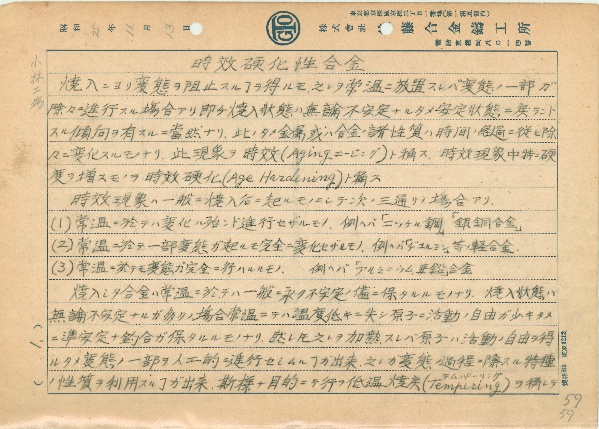 東京都京橋區京橋二丁目一番地(第一相互館内)
昭和 25年 11月 13日
GTO
株式會社 後藤合金鑄工所
小林工場
時效硬化性合金
焼入ニヨリ変態ヲ阻止スルヿヲ得ルモ之レヲ常温ニ放置スレバ変態ノ一部ガ
除々ニ進行スル場合アリ即チ焼入状態ハ無論不安定ナルタメ安定状態ニ戻ラント
スル傾向ヲ有スルニ當然ナリ.此ノタメ金属或ハ合金ノ諸性質ハ時間ノ経過ニ從ヒ除
々ニ変化スルモノナリ.此現象ヲ時效(Agingエージング)ト稱ス.時效現象中特ニ硬
度ヲ増スモノヲ時效硬化(Age Hardining)ト稱ス
時效現象ハ一般ニ焼入后ニ起ルモノニシテ次ノ三通リノ場合アリ.
(1)常温ニ於テハ変化ハ殆ンド進行セザルモノ.例ヘバ「ニッケル鋼」「銀銅合金」
(2)常温ニ於テ一部変態ガ起ルモ完全ニ変化セザルモノ.例ヘバ「デュルミン」等ノ軽合金.
(3)常温ニ於テモ変態ガ完全ニ行ハルルモノ.例ヘバ「アルミニウム亜鉛」合金
焼入シタ合金ハ常温ニ於テハ一般ニ永ク不安定ノ儘ニ保タルルモノナリ.焼入状態ハ
無論不安定ナルガ多クノ場合常温ニテハ温度低キニ失シ原子ニ活動ノ自由ガ少キタメ
ニ準安定ナ釣合ガ保タルルモノナリ.然シ之レヲ加熱スレバ原子ハ活動ノ自由ヲ得
ルタメ変態ノ一部ヲ人工的ニ進行セシムルヿガ出来.之レガ変態ノ過程ニ際スル特種
ノ性質ヲ利用スルヿガ出来.斯様ナ目的ニテ行フ低温焼戻(Temperingテムパーリング)ヲ稱シテ
59
59